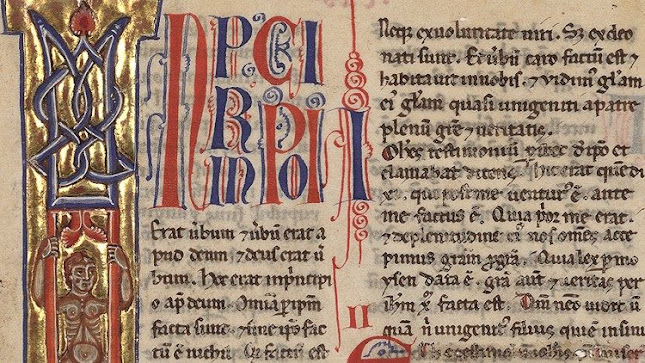 IN PRINCIPIO
Erat úbum ⁊ úbũ erat a
pud deum ⁊ deus erat ú
bum. Hoc erat inprĩcipi
o ap̃ deum. Omĩa ꝑ ip̃m
facta sunt. ⁊ sine ip̃o fac
tũ ẽ nichil. Qd̃ factũ est
Neqꝫ exuoluntate uiri. Sꝫ exdeo
nati sunt. Et úbũ caro factũ est ⁊
habitauit innobis. ⁊ uidimꝰ gl̃am
eiꝰ gl̃am quasi unigeniti apatre
plenũ gr̃e ⁊ ueritatis.
Ioh̃es testimoniũ d̃ ip̃o et
clamabat dicens. Hic erat quẽ di
xi. qui post me uenturꝰ ẽ. ante
me factus ẽ. Quia p̃or me erat.
⁊ deplenitudine eiꝰ nos om̃es acce
pimus gr̃am ꝓ gr̃a. Quia lex ꝑ mo
ysen data ẽ. gr̃a aut̃ ⁊ ueritas per
ih̃m xp̃m facta est. Dm̃ nẽo uidit ũ
quã ñ unigenitꝰ filius qui ẽ insinu
II